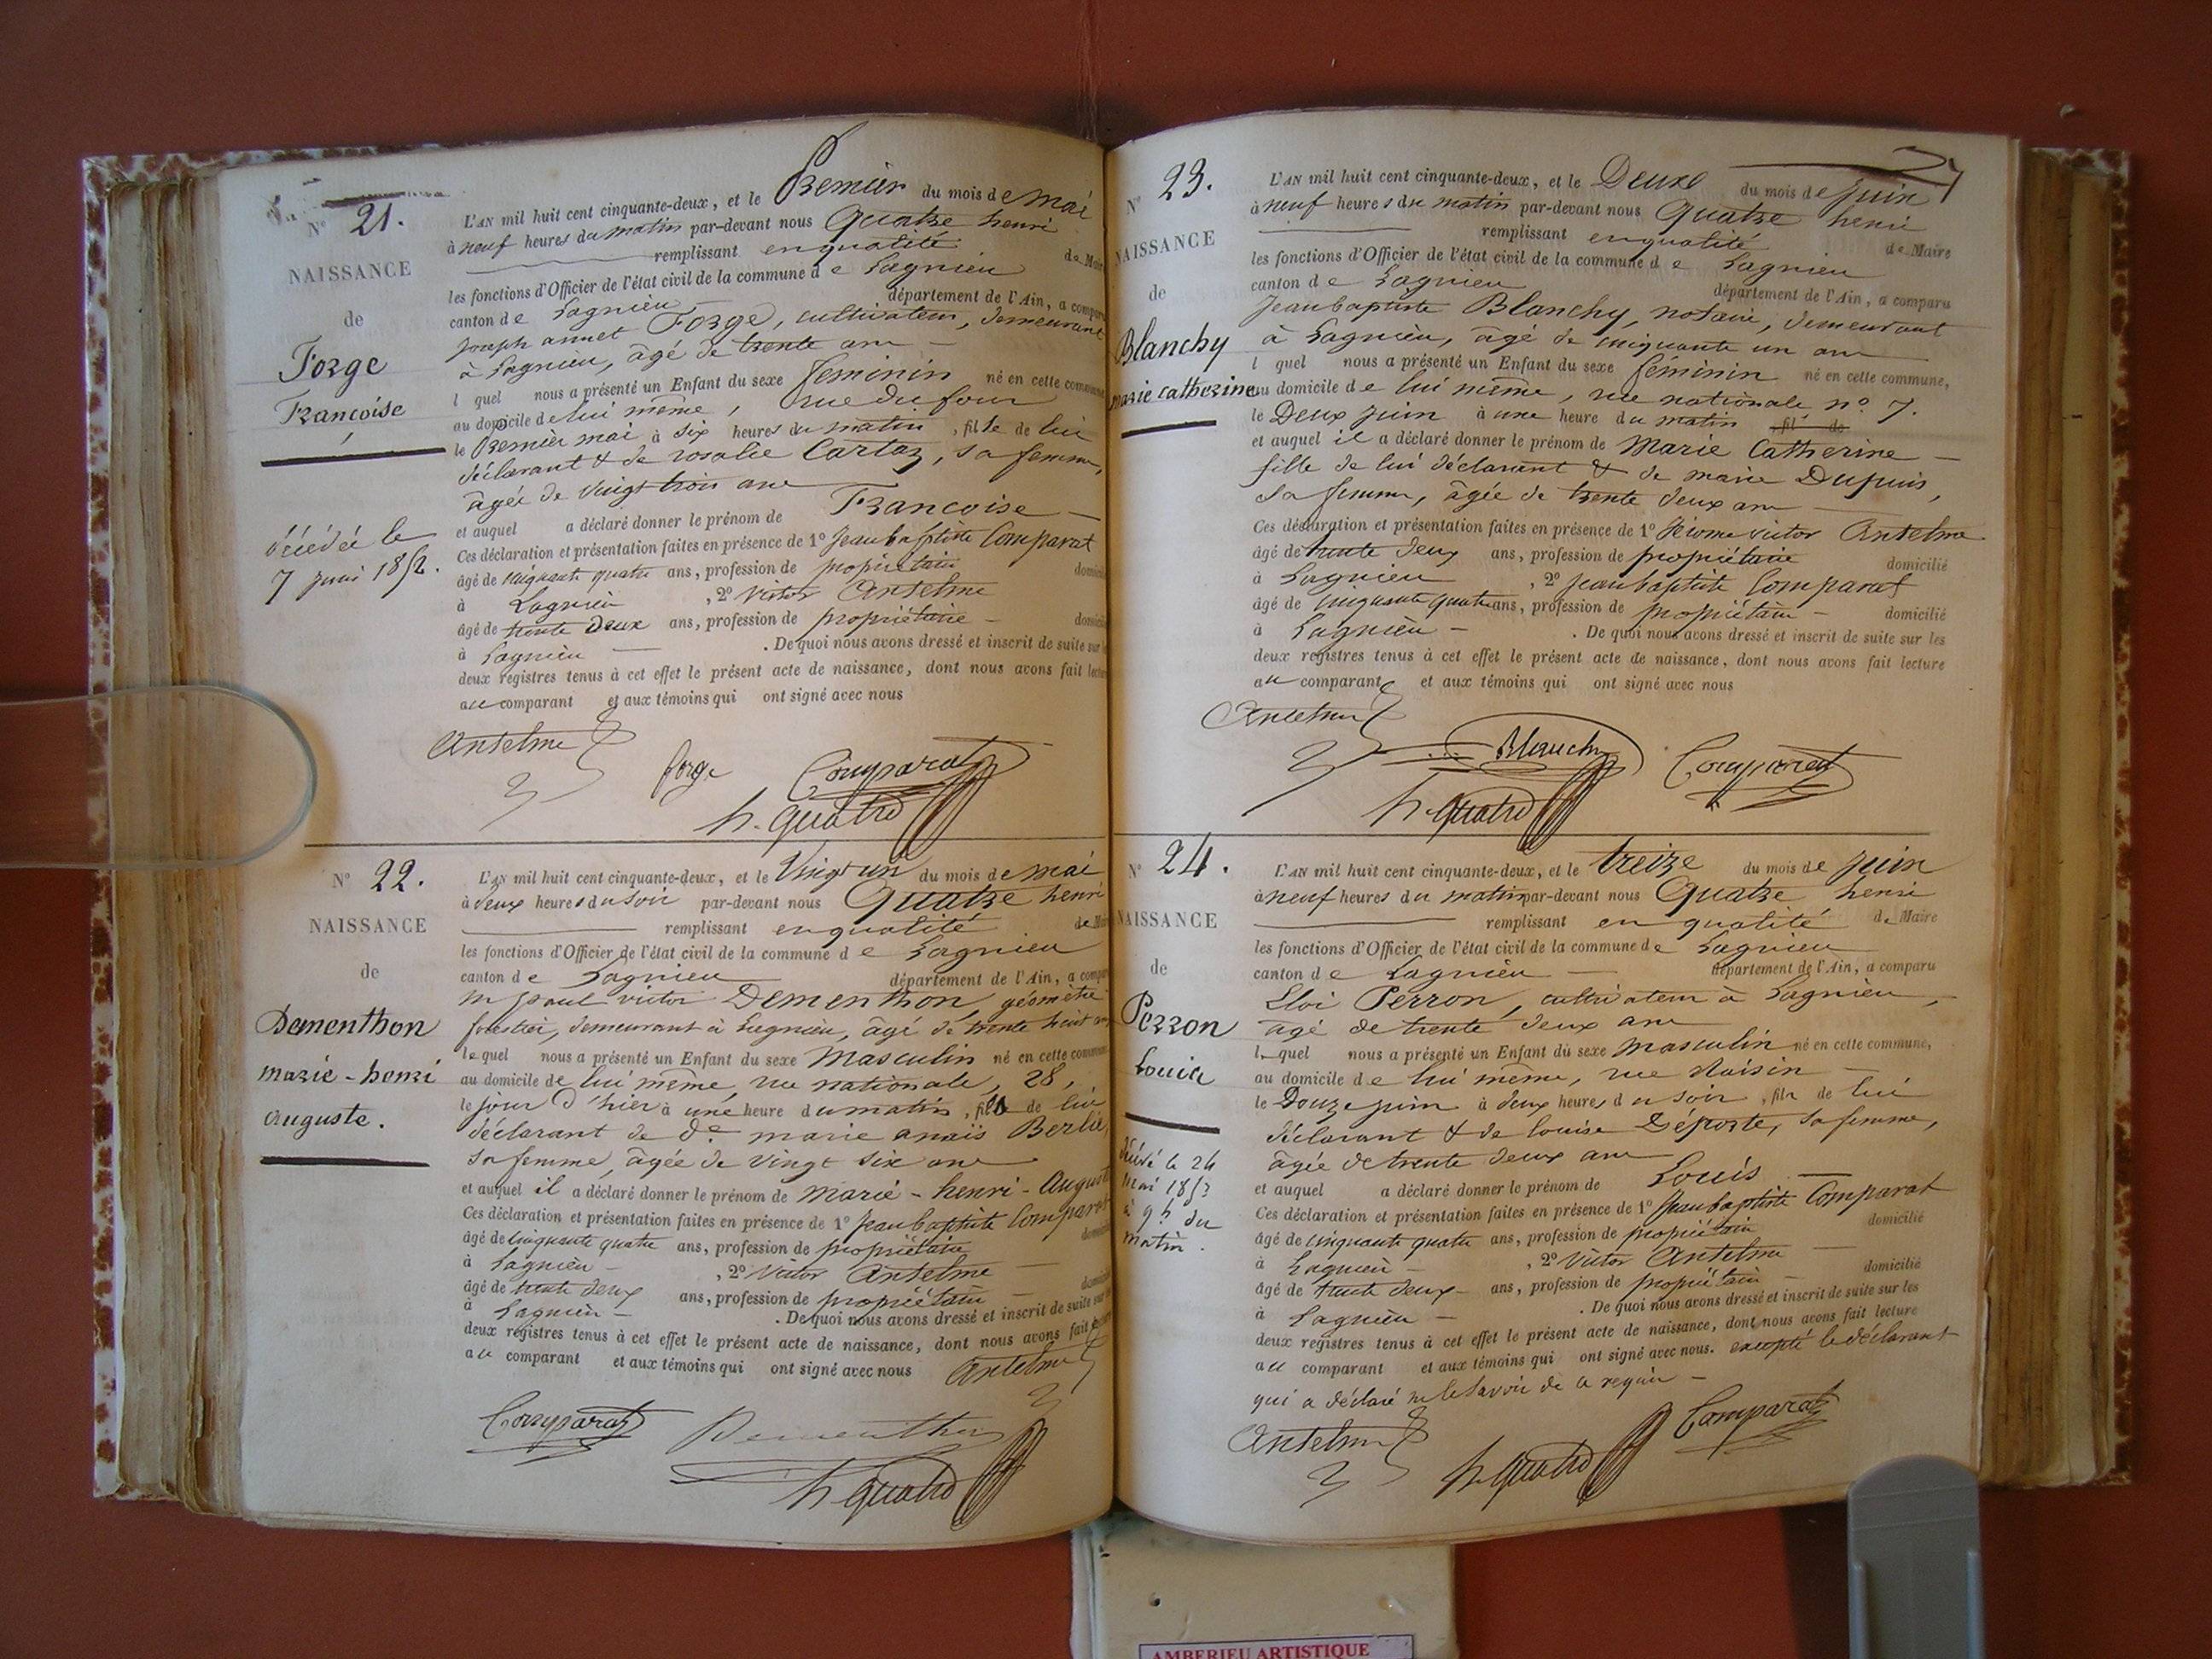 N° 21.
NAISSANCE
de
Forge
Françoise
décédée le
7 juin 1852.
L'AN mil huit cent cinquante-deux, et le Premier du mois de mai
à neuf heures du matin par-devant nous Quatre henri
remplissant en qualité de Maire
les fonctions d'Officier de l'état civil de la commune de Lagnieu
canton de Lagnieu département de l'Ain, a comparu
Joseph annet Forge, cultivateur, demeurant
à Lagnieu, âgé de trente ans
l quel nous a présenté un Enfant du sexe feminin né en cette commune
au domicile de lui même, rue du four
le Premier mai à six heures du matin, fille de lui
déclarant & de rosalie Cartaz, sa femme,
âgée de vingt trois ans
et auquel a déclaré donner le prénom de Françoise
Ces déclaration et présentation faites en présence de 1° Jean baptiste Comparat
âgé de cinquante quatre ans, profession de propriétaire domicilié
à Lagnieu, 2° Victor Anselme
âgé de trente deux ans, profession de propriétaire domicilié
à Lagnieu. De quoi nous avons dressé et inscrit de suite sur les
deux registres tenus à cet effet le présent acte de naissance, dont nous avons fait lecture
au comparant et aux témoins qui ont signé avec nous
Anselme
forge
Comparat
h. Quatre
N° 22.
NAISSANCE
de
Dementhon
marie-henri
auguste.
L'AN mil huit cent cinquante-deux, et le Vingt un du mois de mai
à deux heures du soir par-devant nous Quatre henri
remplissant en qualité de Maire
les fonctions d'Officier de l'état civil de la commune de Lagnieu
canton de Lagnieu département de l'Ain, a comparu
mr paul victor Dementhon, géomètre
forestier, demeurant à Lagnieu, âgé de trente huit ans
lequel nous a présenté un Enfant du sexe Masculin né en cette commune
au domicile de lui même, rue nationale, 28,
le jour d'hier à une heure du matin, fils de lui
déclarant de de marie anaïs Berlié,
sa femme, âgée de vingt six ans
et auquel il a déclaré donner le prénom de marie-henri-Auguste
Ces déclaration et présentation faites en présence de 1° Jean baptiste Comparat
âgé de cinquante quatre ans, profession de propriétaire domicilié
à Lagnieu, 2° Victor Anselme
âgé de trente deux ans, profession de propriétaire domicilié
à Lagnieu. De quoi nous avons dressé et inscrit de suite sur les
deux registres tenus à cet effet le présent acte de naissance, dont nous avons fait lecture
au comparant et aux témoins qui ont signé avec nous Anselme
Comparat
Dementhon
h. Quatre
N° 23.
NAISSANCE
de
Blanchy
marie catherine
L'AN mil huit cent cinquante-deux, et le Deuxe du mois de juin
à neuf heures du matin par-devant nous Quatre henri
remplissant en qualité de Maire
les fonctions d'Officier de l'état civil de la commune de Lagnieu
canton de Lagnieu département de l'Ain, a comparu
Jean baptiste Blanchy, notaire, demeurant
à Lagnieu, âgé de cinquante un ans
l quel nous a présenté un Enfant du sexe féminin né en cette commune,
au domicile de lui même, rue nationale, n° 7.
le Deux juin à une heure du matin, fil de
et auquel il a déclaré donner le prénom de Marie Catherine
fille de lui déclarant & de marie Dupuis,
sa femme, âgée de trente deux ans
Ces déclaration et présentation faites en présence de 1° Jérome victor Anselme
âgé de trente deux ans, profession de propriétaire domicilié
à Lagnieu, 2° Jean baptiste Comparat
âgé de cinquante quatre ans, profession de propriétaire domicilié
à Lagnieu. De quoi nous avons dressé et inscrit de suite sur les
deux registres tenus à cet effet le présent acte de naissance, dont nous avons fait lecture
au comparant et aux témoins qui ont signé avec nous
Anselme
Blanchy
Comparat
h. Quatre
N° 24.
NAISSANCE
de
Perron
Louis
décédé le 24
mai 1853
à 9h du
matin.
L'AN mil huit cent cinquante-deux, et le treize du mois de juin
à neuf heures du matin par-devant nous Quatre henri
remplissant en qualité de Maire
les fonctions d'Officier de l'état civil de la commune de Lagnieu
canton de Lagnieu département de l'Ain, a comparu
Eloi Perron, cultivateur à Lagnieu,
âgé de trente deux ans
le quel nous a présenté un Enfant du sexe masculin né en cette commune,
au domicile de lui même, rue
le Douze juin à deux heures du soir, fils de lui
déclarant & de louise Déporte, sa femme,
âgée de trente deux ans
et auquel a déclaré donner le prénom de Louis
Ces déclaration et présentation faites en présence de 1° Jean baptiste Comparat
âgé de cinquante quatre ans, profession de propriétaire domicilié
à Lagnieu, 2° Victor Anselme
âgé de trente deux ans, profession de propriétaire domicilié
à Lagnieu. De quoi nous avons dressé et inscrit de suite sur les
deux registres tenus à cet effet le présent acte de naissance, dont nous avons fait lecture
au comparant et aux témoins qui ont signé avec nous. excepté le déclarant
qui a déclaré ne le savoir de ce requis
Anselme
h. Quatre
Comparat
AMBERIEU ARTISTIQUE